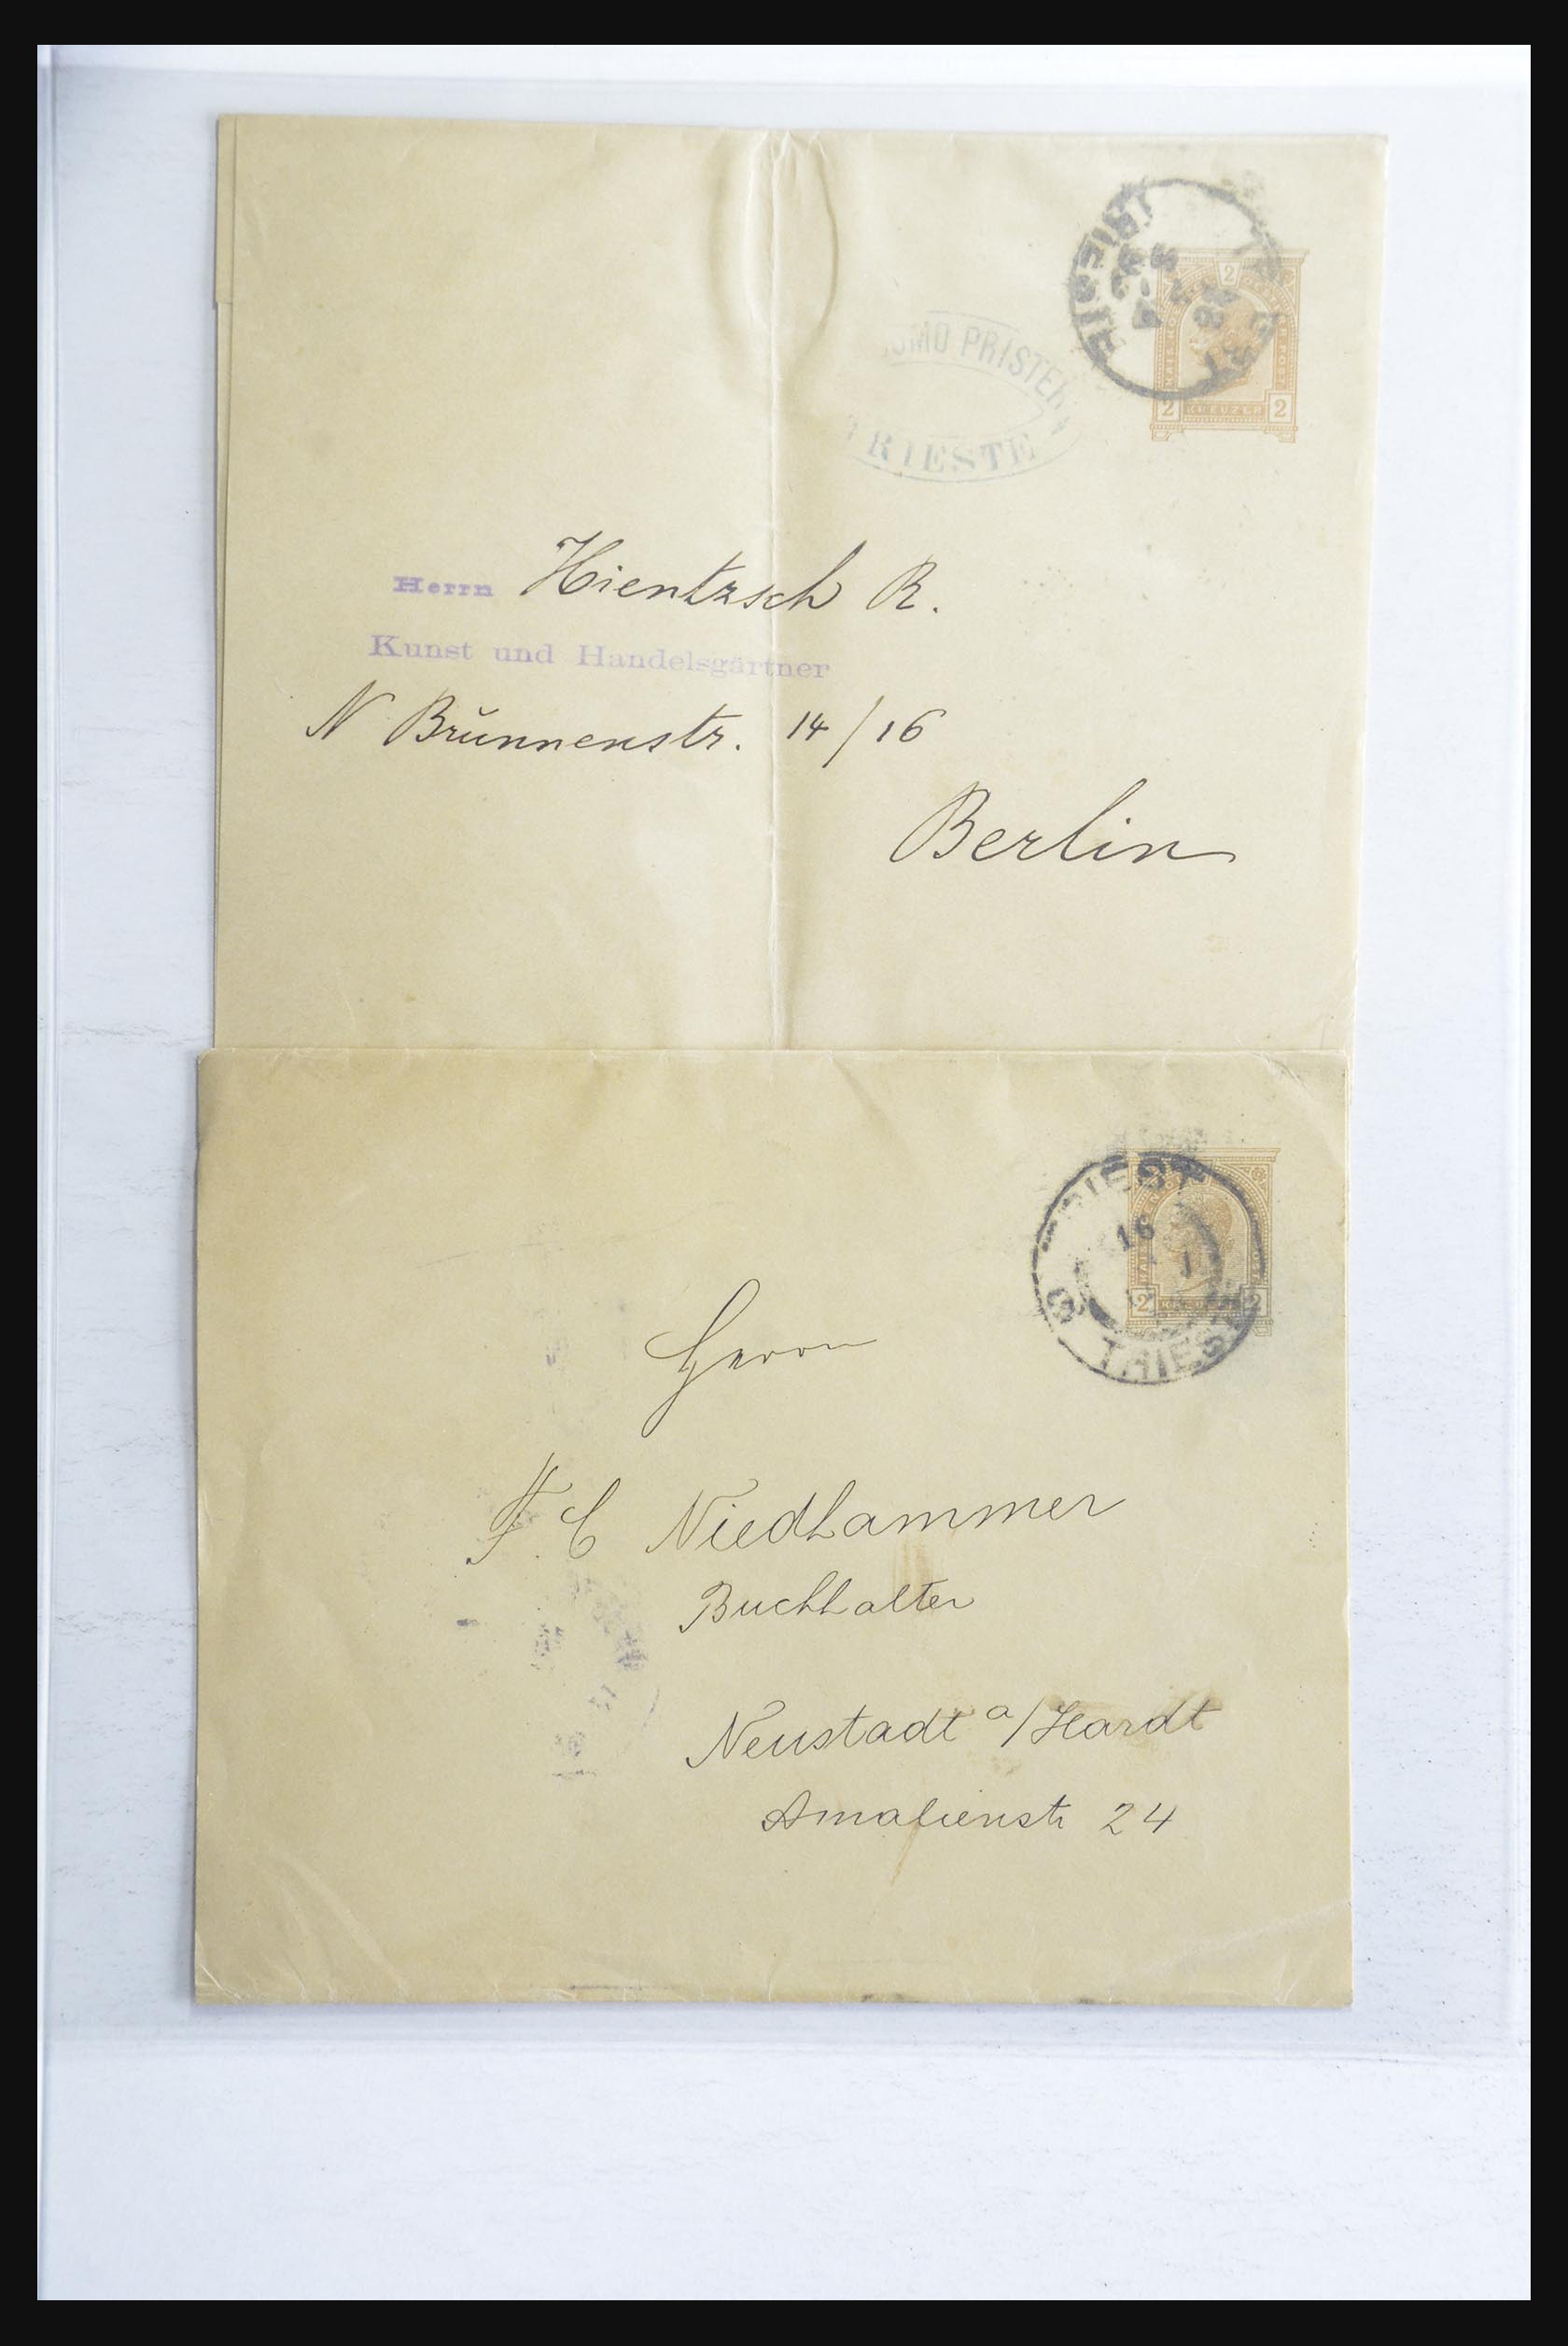 TRIESTE
2
2 KREUZER 2
PRISTER
TRIESTE
Herrn Hientzsch R.
Kunst und Handelsgärtner
N Brunnenstr. 14/16
Berlin
TRIEST
16
2 2
TRIEST
Herrn
F. C Niedhammer
Buchhalter
Neustadt a/Hardt
Amalienstr 24